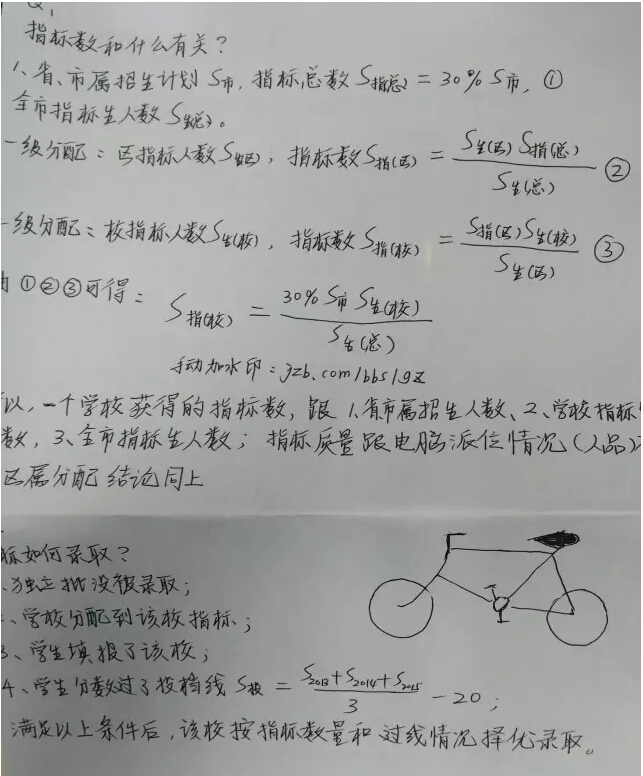 Q1
指标数和什么有关?
1、省、市属招生计划 S市, 指标总数 S指(总) = 30% S市, ①
全市指标生人数 S生(总)。
一级分配: 区指标人数 S生(区), 指标数 S指(区) = S生(区) S指(总) / S生(总) ②
级分配: 校指标人数 S生(校), 指标数 S指(校) = S指(区) S生(校) / S生(区) ③
由 ①②③可得: S指(校) = 30% S市 S生(校) / S生(总)
手动加水印: jzb.com/bbs/gz
以, 一个学校获得的指标数, 跟 1、省市属招生人数、2、学校指标
数, 3、全市指标生人数; 指标质量跟电脑派位情况(人品)
区属分配结论同上
标如何录取?
、独立批没被录取;
、学校分配到该校指标;
3、学生填报了该校;
4、学生分数过了投档线 S投 = S2013+S2014+S2015 / 3 - 20;
满足以上条件后, 该校按指标数量和过线情况择优录取。